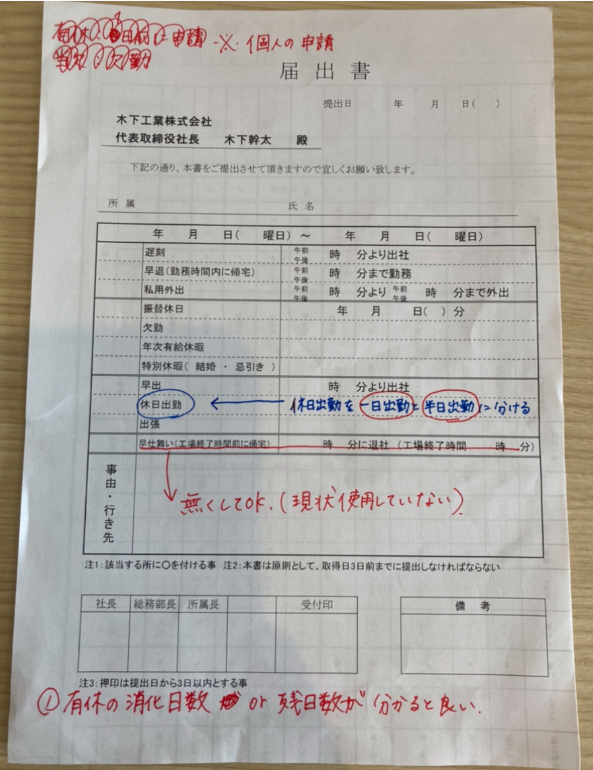 ※個人の申請
届出書
提出日 年 月 日( )
木下工業株式会社
代表取締役社長 木下幹太 殿
下記の通り、本書をご提出させて頂きますので宜しくお願い致します。
所属 氏名
年 月 日( 曜日) ～ 年 月 日( 曜日)
遅刻 午前 午後 時 分より出社
早退(勤務時間内に帰宅) 午前 午後 時 分まで勤務
私用外出 午前 午後 時 分より 午前 午後 時 分まで外出
振替休日 年 月 日( )分
欠勤
年次有給休暇
特別休暇( 結婚 ・ 忌引き )
早出 時 分より出社
休日出勤 ← 休日出勤を一日出勤と半日出勤に分ける
出張
早仕舞い(工場終了時間前に帰宅) 時 分に退社 (工場終了時間 時 分)
事由・行き先
無くしてOK.(現状使用していない)
注1:該当する所に〇を付ける事 注2:本書は原則として、取得日3日前までに提出しなければならない
社長 総務部長 所属長 受付印 備考
注3:押印は提出日から3日以内とする事
① 有休の消化日数 or 残日数が分かると良い.